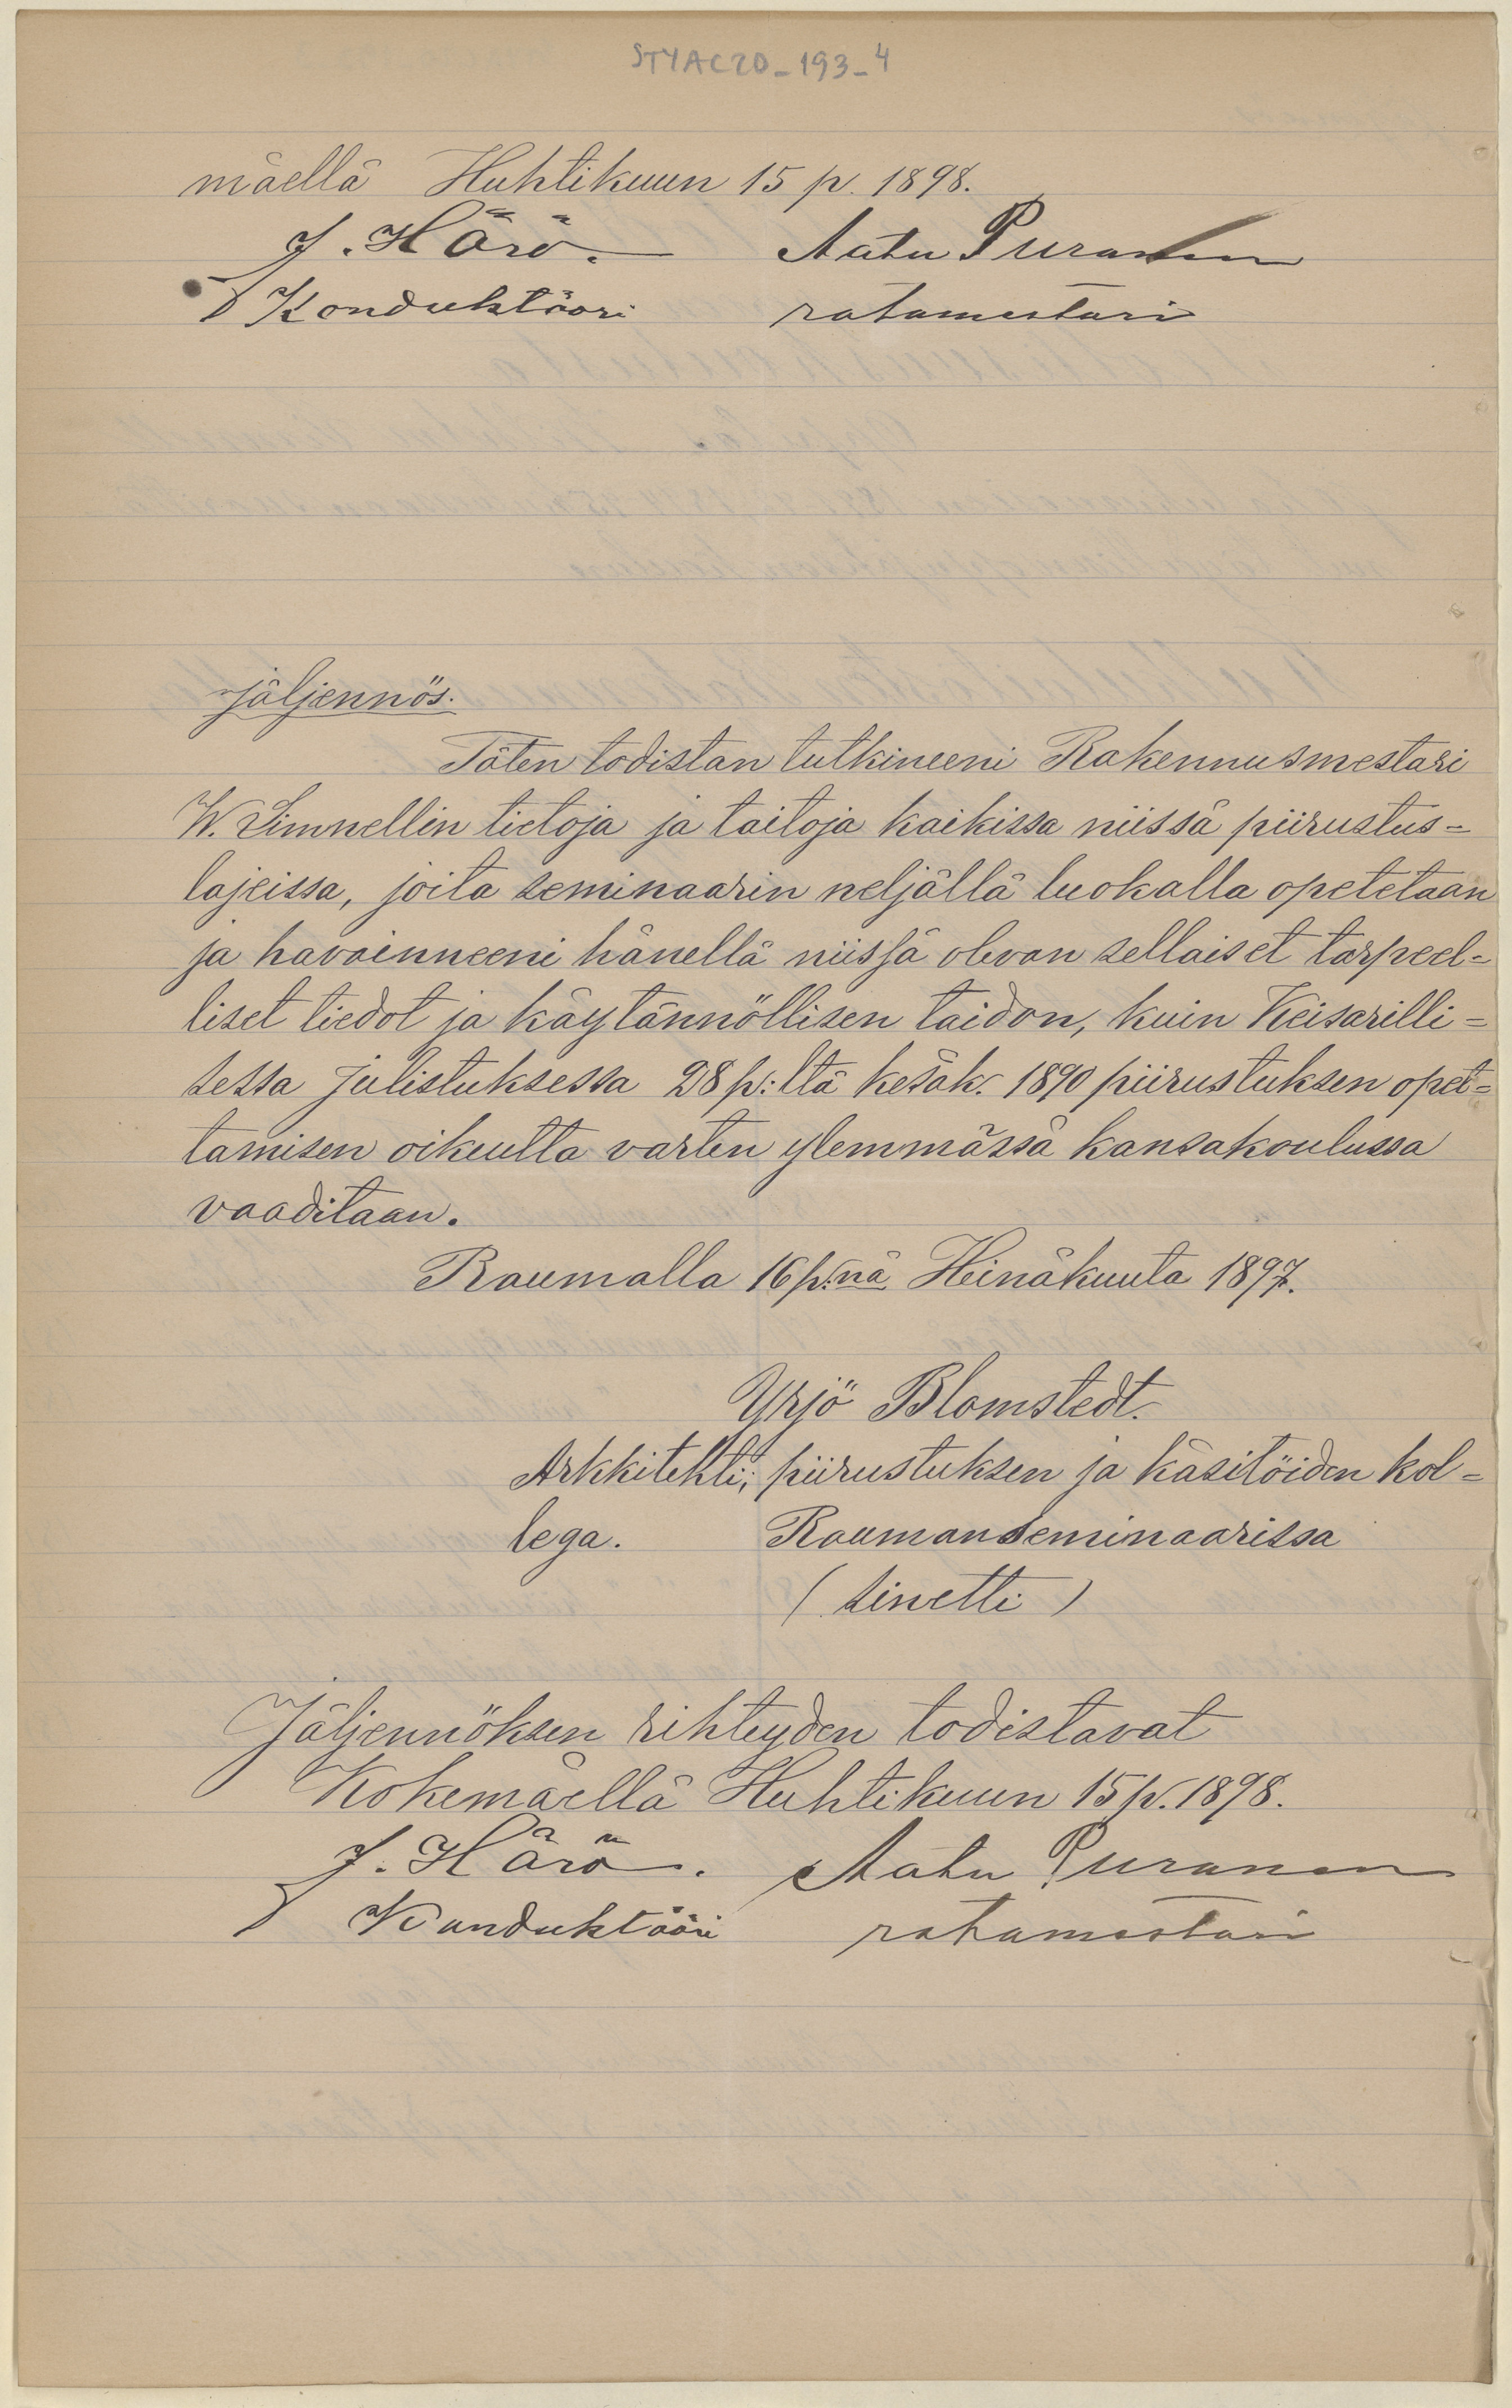 STYAC20_193_4
mäellä Huhtikuun 15 p. 1898.
J. Härö. Aatu Puranen
Konduktööri ratamestari
Jäljennös.
Täten todistan tutkineeni Rakennusmestari
W. Linnellin tietoja ja taitoja kaikissa niissä piirustus=
lajeissa, joita seminaarin neljällä luokalla opetetaan
ja havainneeni hänellä niissä olevan sellaiset tarpeel=
liset tiedot ja käytännöllisen taidon, kuin Keisarilli=
sessa julistuksessa 28 p:ltä kesäk. 1890 piirustuksen opet=
tamisen oikeutta varten ylemmässä kansakoulussa
vaaditaan.
Raumalla 16 p:nä Heinäkuuta 1897.
Yrjö Blomstedt.
Arkkitehti, piirustuksen ja käsitöiden kol=
lega. Rauman seminaarissa
(sinetti)
Jäljennöksen rihteyden todistavat
Kokemäellä Huhtikuun 15 p. 1898.
J. Härö. Aatu Puranen
Konduktööri ratamestari